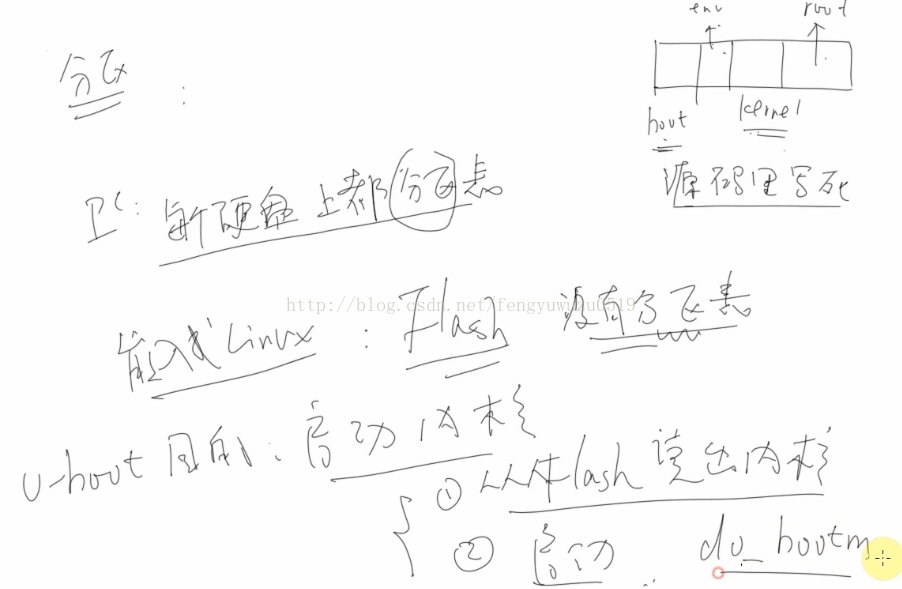 env root
分区:
boot kernel
源码里写死
PC: 每个硬盘上都分区表
http://blog.csdn.net/fengyuwuzu0519
嵌入式Linux : Flash 没有分区表
u-boot 目的: 启动内核
① 从Flash 读出内核
② 启动 do_bootm